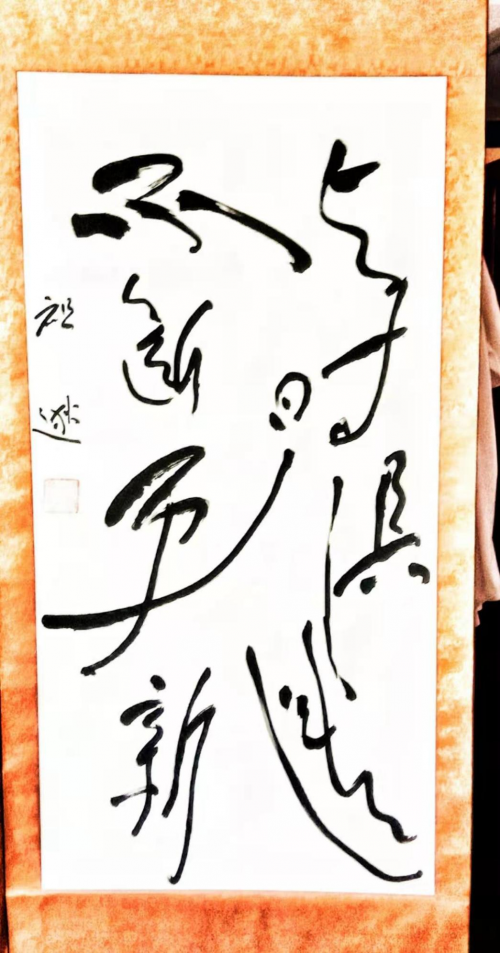 与时俱进
不断更新
祖逖